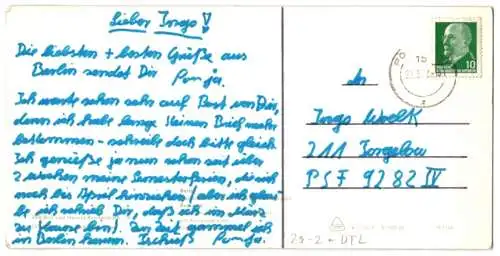 Lieber Ingo!
Die liebsten + besten Grüße aus
Berlin sendet Dir
Ich warte schon sehr auf Post von Dir,
denn ich habe lange keinen Brief mehr
bekommen - schreibe doch bitte gleich.
Ich genieße ja nun schon seit über
2 Wochen meine Semesterferien, die sich
noch bis April hinziehen (aber ich glau
be ich schrieb Dir, daß ich im März
zu Hause bin). Zur Zeit gammel ich
in Berlin herum. Tschüß
An
Ingo
211 Torgelow
PSF 9282 IV
10